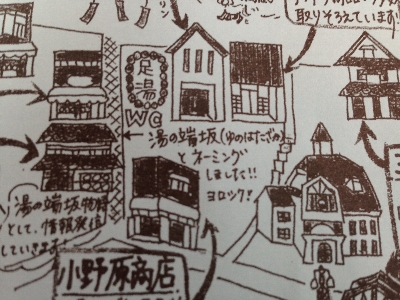 リン
取りそろえています!
足湯
WC
湯の端坂(ゆのはたざか)
とネーミング
しました!!
ヨロシク!
湯の端坂物語
として、情報発信
していきます
小野原商店